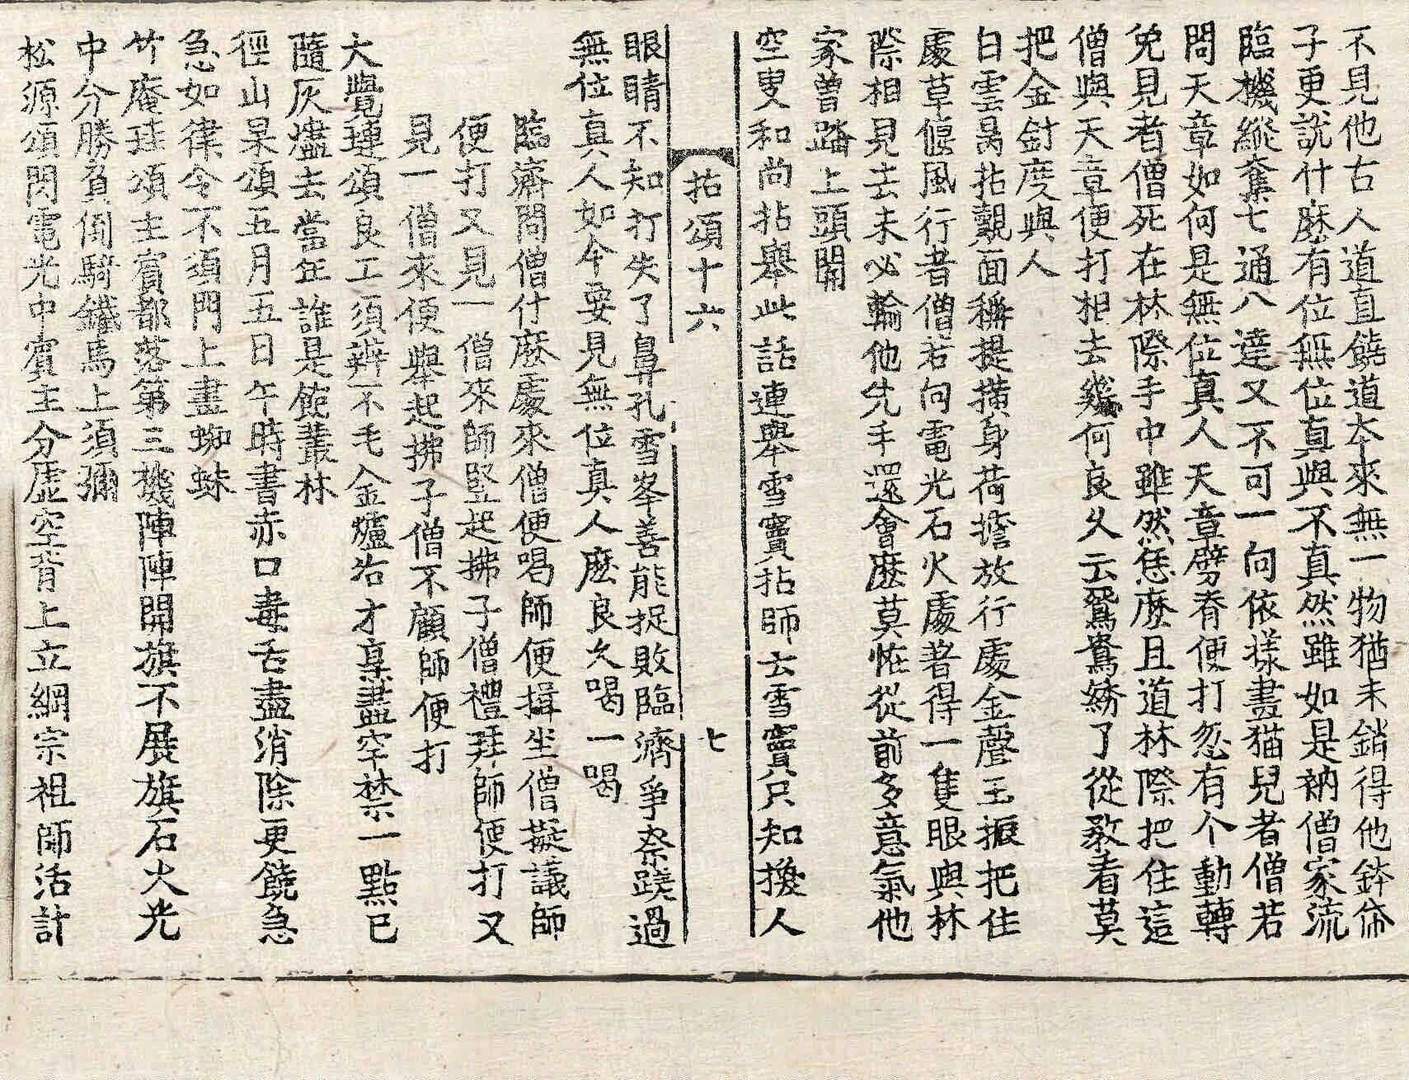 不見他古人道直饒道本來無一物猶未銷得他鉢帒
子更說什麽有位無位真與不真然雖如是衲僧家流
臨機縱奪七通八達又不可一向依樣畫猫兒者僧若
問天章如何是無位真人天章劈脊便打忽有个動轉
免見者僧死在林際手中雖然恁麽且道林際把住這
僧與天章便打相去幾何良久云鴛鴦綉了從教看莫
把金針度與人
白雲昺拈覿面稱提橫身荷擔放行處金聲玉振把住
處草偃風行者僧若向電光石火處著得一隻眼與林
際相見去未必輸他先手還會麽莫恠從前多意氣他
家曾踏上頭關
空叟和尚拈舉此話連舉雪竇拈師云雪竇只知換人
拈頌十六 七
眼睛不知打失了鼻孔雪峯善能捉敗臨濟爭柰蹉過
無位真人如今要見無位真人麽良久喝一喝
臨濟問僧什麽處來僧便喝師便揖坐僧擬議師
便打又見一僧來師竪起拂子僧禮拜師便打又
見一僧來便舉起拂子僧不顧師便打
大覺璉頌良工須辨不毛金爐冶才臬盡罕禁一點已
隨灰燼去當年誰是飽叢林
徑山杲頌五月五日午時書赤口毒舌盡消除更饒急
急如律令不須門上畫蜘蛛
竹庵珪頌主賓都落第三機陣陣開旗不展旗石火光
中分勝負倒騎鐵馬上須彌
松源頌閃電光中賓主分虛空背上立綱宗祖師活計